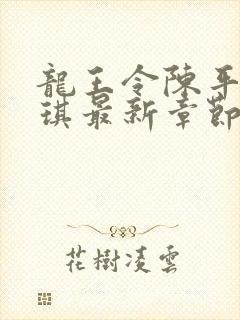 龍王令陳平
琪最新章節
花樹凌雲